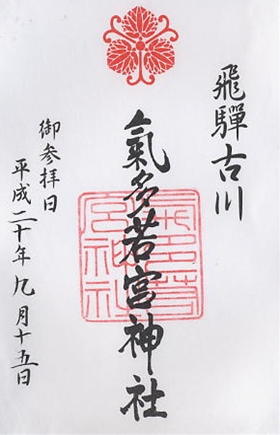 飛驒古川
氣多若宮神社
御参拝日
平成二十年九月十五日